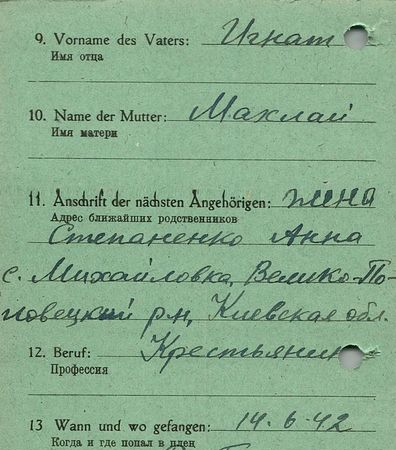 9. Vorname des Vaters: Игнат
Имя отца
10. Name der Mutter: Махлай
Имя матери
11. Anschrift der nächsten Angehörigen: жена
Адрес ближайших родственников
Степаненко Анна
с. Михайловка, Велико-По-
ловецкий р-н, Киевская обл.
12. Beruf: Крестьянин
Профессия
13 Wann und wo gefangen: 14.6.42
Когда и где попал в плен